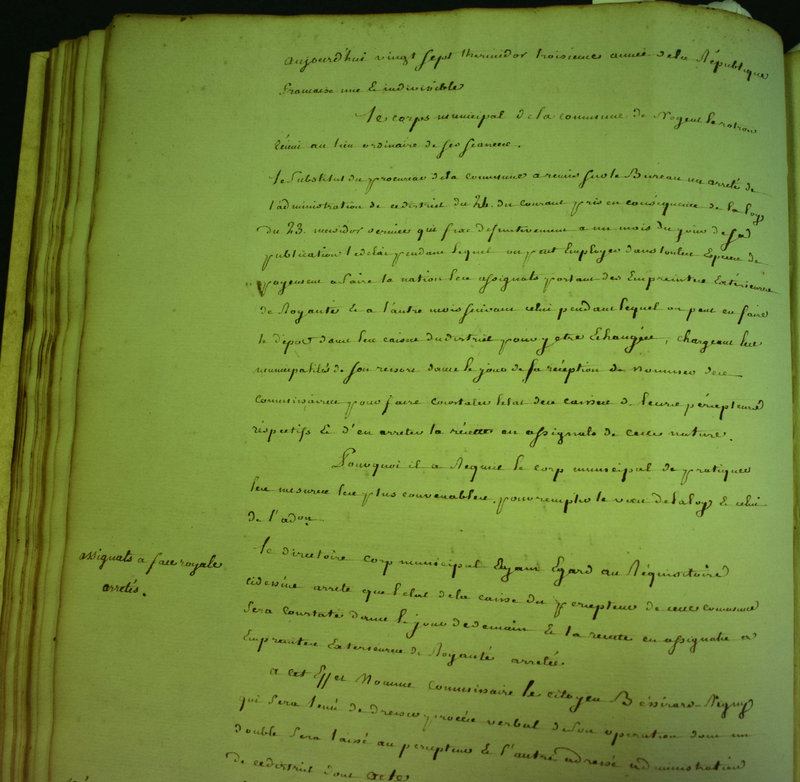 aujourd'hui vingt sept thermidor troisieme année dela République
francaise une & indivisible
le corps municipal dela commune de Nogent le rotrou
réuni au lieu ordinaire de ses seances.
le substitut du procureur dela commune a remis sur le Bureau un arreté de
l'administration de cedistrict du 26. du courant pris en conséquence de la loy
du 23. messidor dernier qui fixe definitivement a un mois du jour de sa
publication le delai pendant lequel on peut Employer dans toutes Especes de
payement a faire la nation les assignats portant des Empreintes Extérieures
de Royauté & a l'autre mois suivant celui pendant lequel on peut en faire
le dépot dans les caisses dudistrict pour y etre Echangées, chargeant les
municipalités de son ressort dans le jour de sa réception de Nommer des
commissaires pour faire constater letat des caisses de leurs percepteurs
respectifs & d'en arreter la récette en assignats de cette nature.
Pourquoi il a Requis le corp municipal de pratiquer
les mesures les plus convenables pour remplir le voeu dela loy & celui
de l'adon
le directoire corp municipal Ayant Egard au Réquisitoire
cidessus arrete que letat dela caisse du percepteur de cette commune
sera constaté dans le jour dedemain & la recette en assignats a
Empreintes Exterieures de Royauté arretée
a cet Effet Nomme commissaire le citoyen
qui sera tenu de dresser procès verbal deson operation dont un
double sera laissé au percepteur & l'autre adressé administration
de cedistrict dont acte
assignats a face royale
arretés.